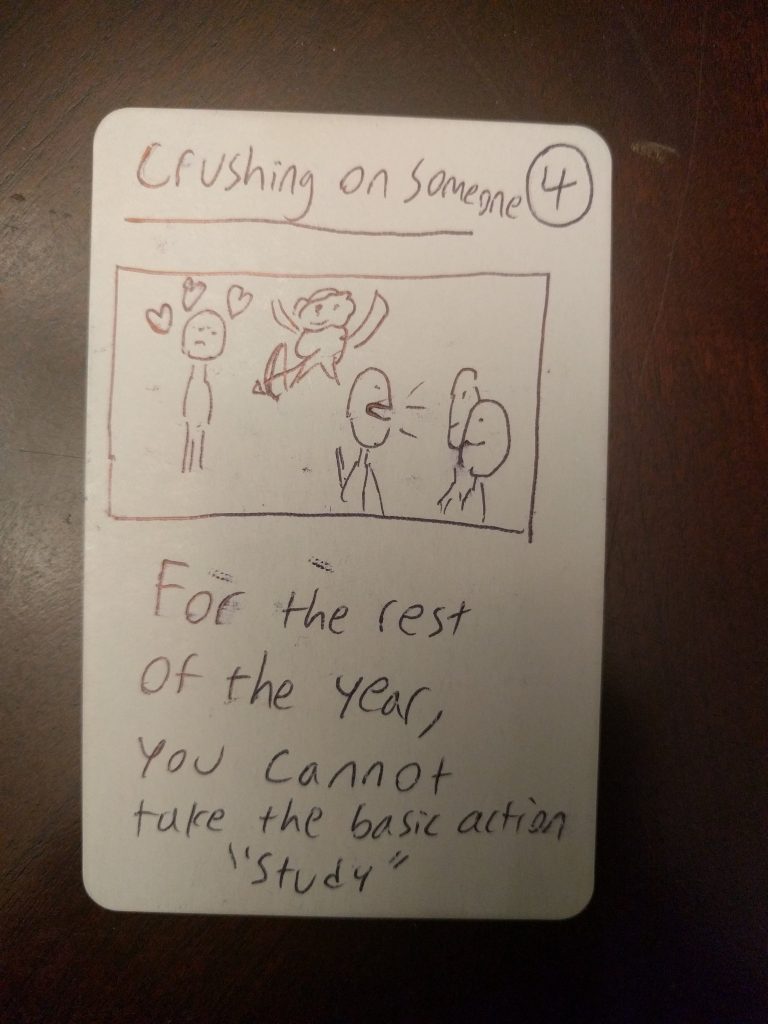 Crushing on someone 4
For the rest
of the year,
you cannot
take the basic action
"Study"